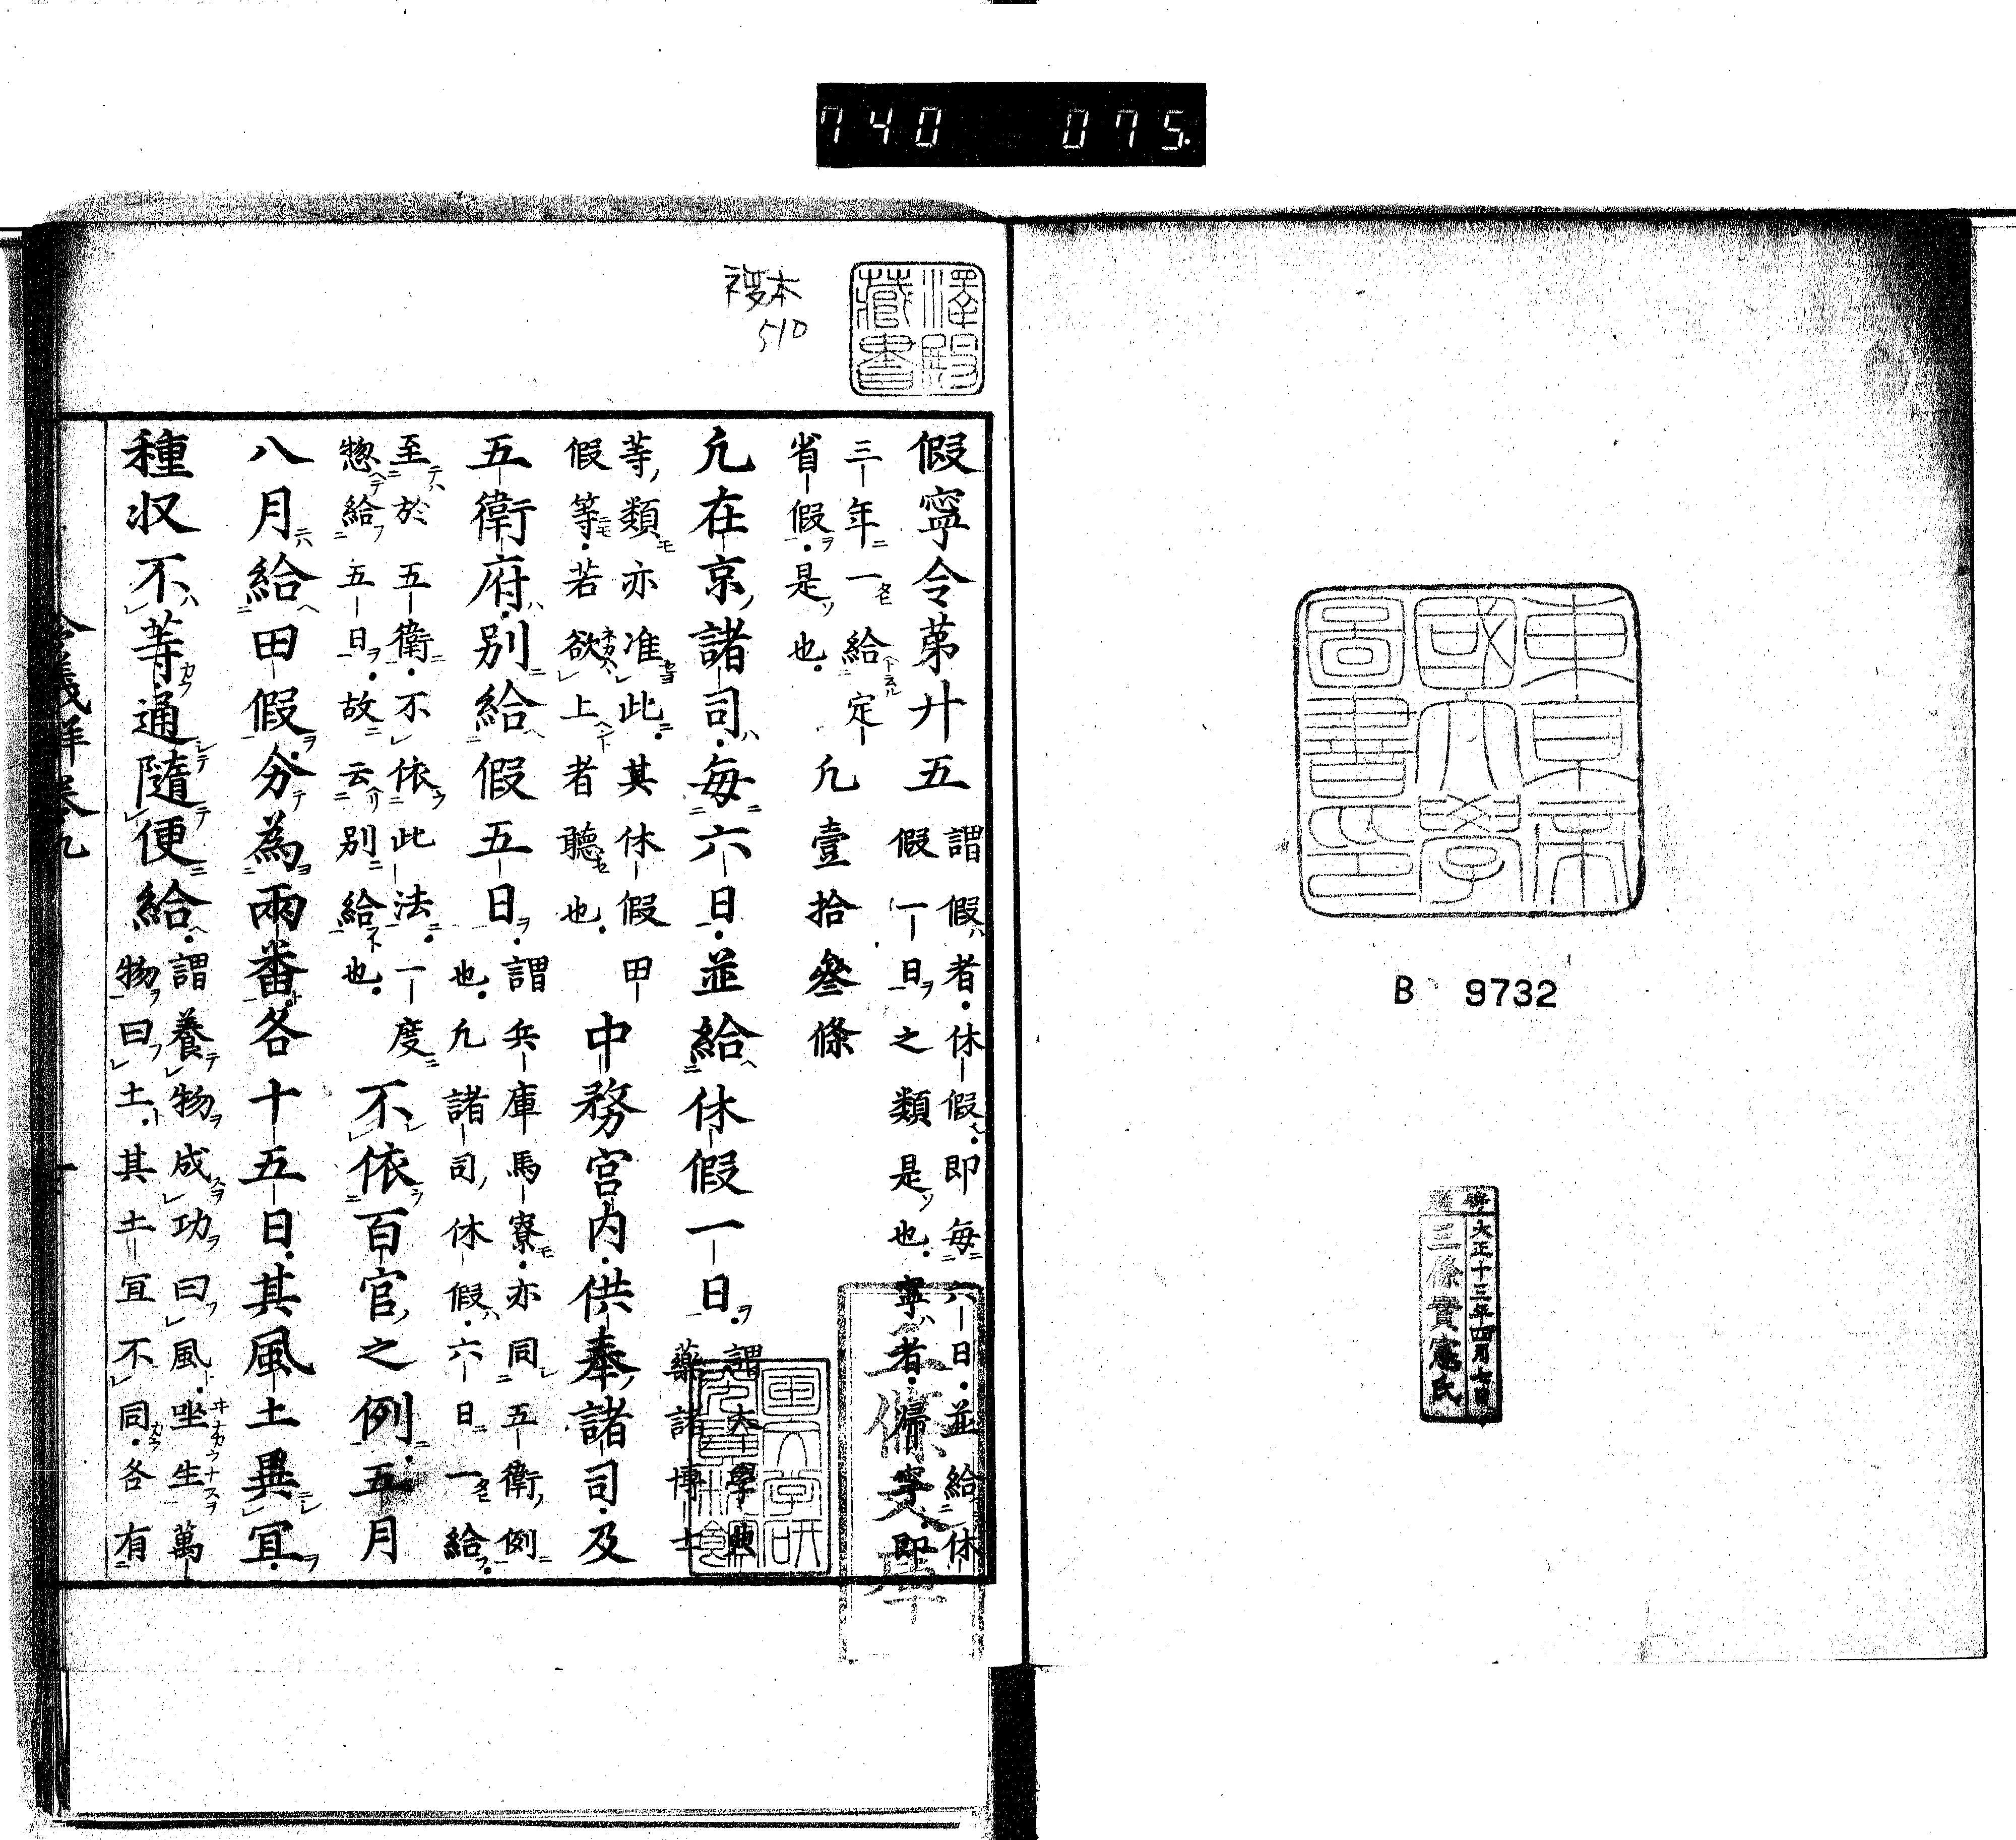 740 075
東京帝
國大學
圖書印
B 9732
寄贈
大正十三年四月七日
三條實憲氏
複本
510
假寧令第廿五
謂假者休假即毎六日並給休
假一日之類是也寧者歸寧即
三年一給定
省假是也
凢壹拾叄條
凢在京諸司毎六日並給休假一日
謂大學典
藥諸博士
等類亦准此其休假田
假等若欲上者聽也
中務宮内供奉諸司及
五衛府別給假五日
謂兵庫馬寮亦同五衛例
也凢諸司休假六日一給
至於五衛不依此法一度
惣給五日故云別給也
不依百官之例五月
八月給田假分為兩番各十五日其風土異宜
種収不等通隨便給
謂養物成功曰風坐生萬
物曰土其土宜不同各有
令義解卷九
一